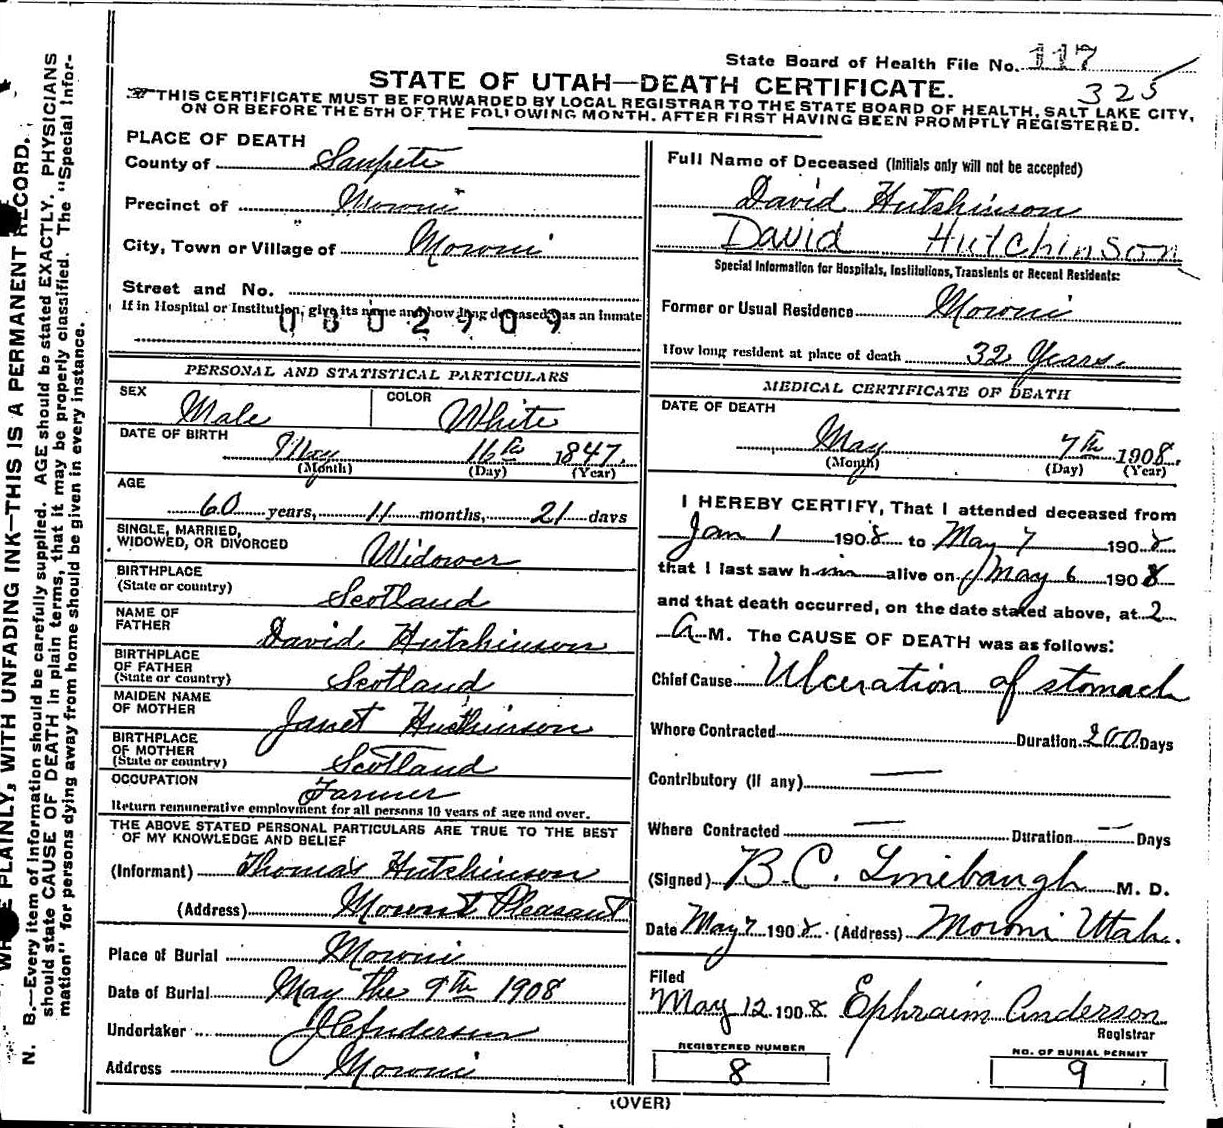 State Board of Health File No. 117
325
STATE OF UTAH—DEATH CERTIFICATE.
THIS CERTIFICATE MUST BE FORWARDED BY LOCAL REGISTRAR TO THE STATE BOARD OF HEALTH, SALT LAKE CITY,
ON OR BEFORE THE 5TH OF THE FOLLOWING MONTH. AFTER FIRST HAVING BEEN PROMPTLY REGISTERED.
PLACE OF DEATH
County of Sanpete
Precinct of Moroni
City, Town or Village of Moroni
Street and No.
If in Hospital or Institution, give its name and how long deceased was an inmate
0802909
PERSONAL AND STATISTICAL PARTICULARS
SEX Male COLOR White
DATE OF BIRTH
May 16th 1847.
(Month) (Day) (Year)
AGE
60 years, 11 months, 21 days
SINGLE, MARRIED,
WIDOWED, OR DIVORCED Widower
BIRTHPLACE
(State or country) Scotland
NAME OF
FATHER David Hutchinson
BIRTHPLACE
OF FATHER
(State or country) Scotland
MAIDEN NAME
OF MOTHER Janet Hutchinson
BIRTHPLACE
OF MOTHER
(State or country) Scotland
OCCUPATION
Farmer
Return remunerative employment for all persons 10 years of age and over.
THE ABOVE STATED PERSONAL PARTICULARS ARE TRUE TO THE BEST
OF MY KNOWLEDGE AND BELIEF
(Informant) Thomas Hutchinson
(Address) Mount Pleasant
Place of Burial Moroni
Date of Burial May the 9th 1908
Undertaker Anderson
Address Moroni
Full Name of Deceased (Initials only will not be accepted)
David Hutshinson
David Hutchinson
Special Information for Hospitals, Institutions, Transients or Recent Residents:
Former or Usual Residence Moroni
How long resident at place of death 32 Years.
MEDICAL CERTIFICATE OF DEATH
DATE OF DEATH
May 7th 1908.
(Month) (Day) (Year)
I HEREBY CERTIFY, That I attended deceased from
Jan 1 1908 to May 7 1908
that I last saw him alive on May 6 1908
and that death occurred, on the date stated above, at 2
A M. The CAUSE OF DEATH was as follows:
Chief Cause Ulceration of stomach
Where Contracted Duration 200 Days
Contributory (if any) —
Where Contracted — Duration — Days
(Signed) B.C. Linebaugh M. D.
Date May 7 1908 (Address) Moroni Utah.
Filed
May 12 1908 Ephraim Anderson
Registrar
REGISTERED NUMBER
8
NO. OF BURIAL PERMIT
9
(OVER)
PLAINLY, WITH UNFADING INK—THIS IS A PERMANENT RECORD.
N. B.—Every item of information should be carefully supplied. AGE should be stated EXACTLY. PHYSICIANS
should state CAUSE OF DEATH in plain terms, that it may be properly classified. The "Special Infor-
mation" for persons dying away from home should be given in every instance.